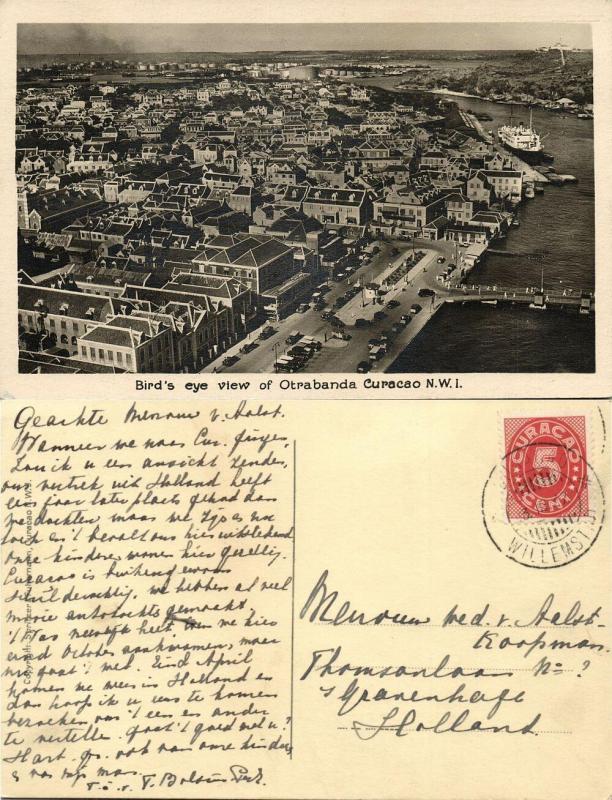 Bird's eye view of Otrabanda Curacao N.W.I.
Geachte Mevrouw v. Aalst.
Wanneer we naar Cur. gingen,
zou ik u een ansicht zenden,
ons vertrek uit Holland heeft
een jaar later plaats gehad dan
we dachten maar we zijn er nu
ook en 't bevalt ons hier uitstekend
onze kinderen wonen hier gezellig.
Curacao is buitengewoon
schilderachtig, we hebben al veel
mooie autotochten gemaakt,
't Was heet, toen we hier
eind October aankwamen, maar
nu gaat 't wel. Eind April
komen we weer in Holland en
dan hoop ik u eens te komen
bezoeken om 't een en ander
te vertellen. Gaat 't goed met u?
Hart. gr. ook van onze kinderen
en van mijn man.
t. à. v. T. Bolsius
CURACAO
5
CENT
WILLEMSTAD
Mevrouw wed. v. Aalst-
Koopman.
Thomsonlaan No ?
's Gravenhage
Holland.